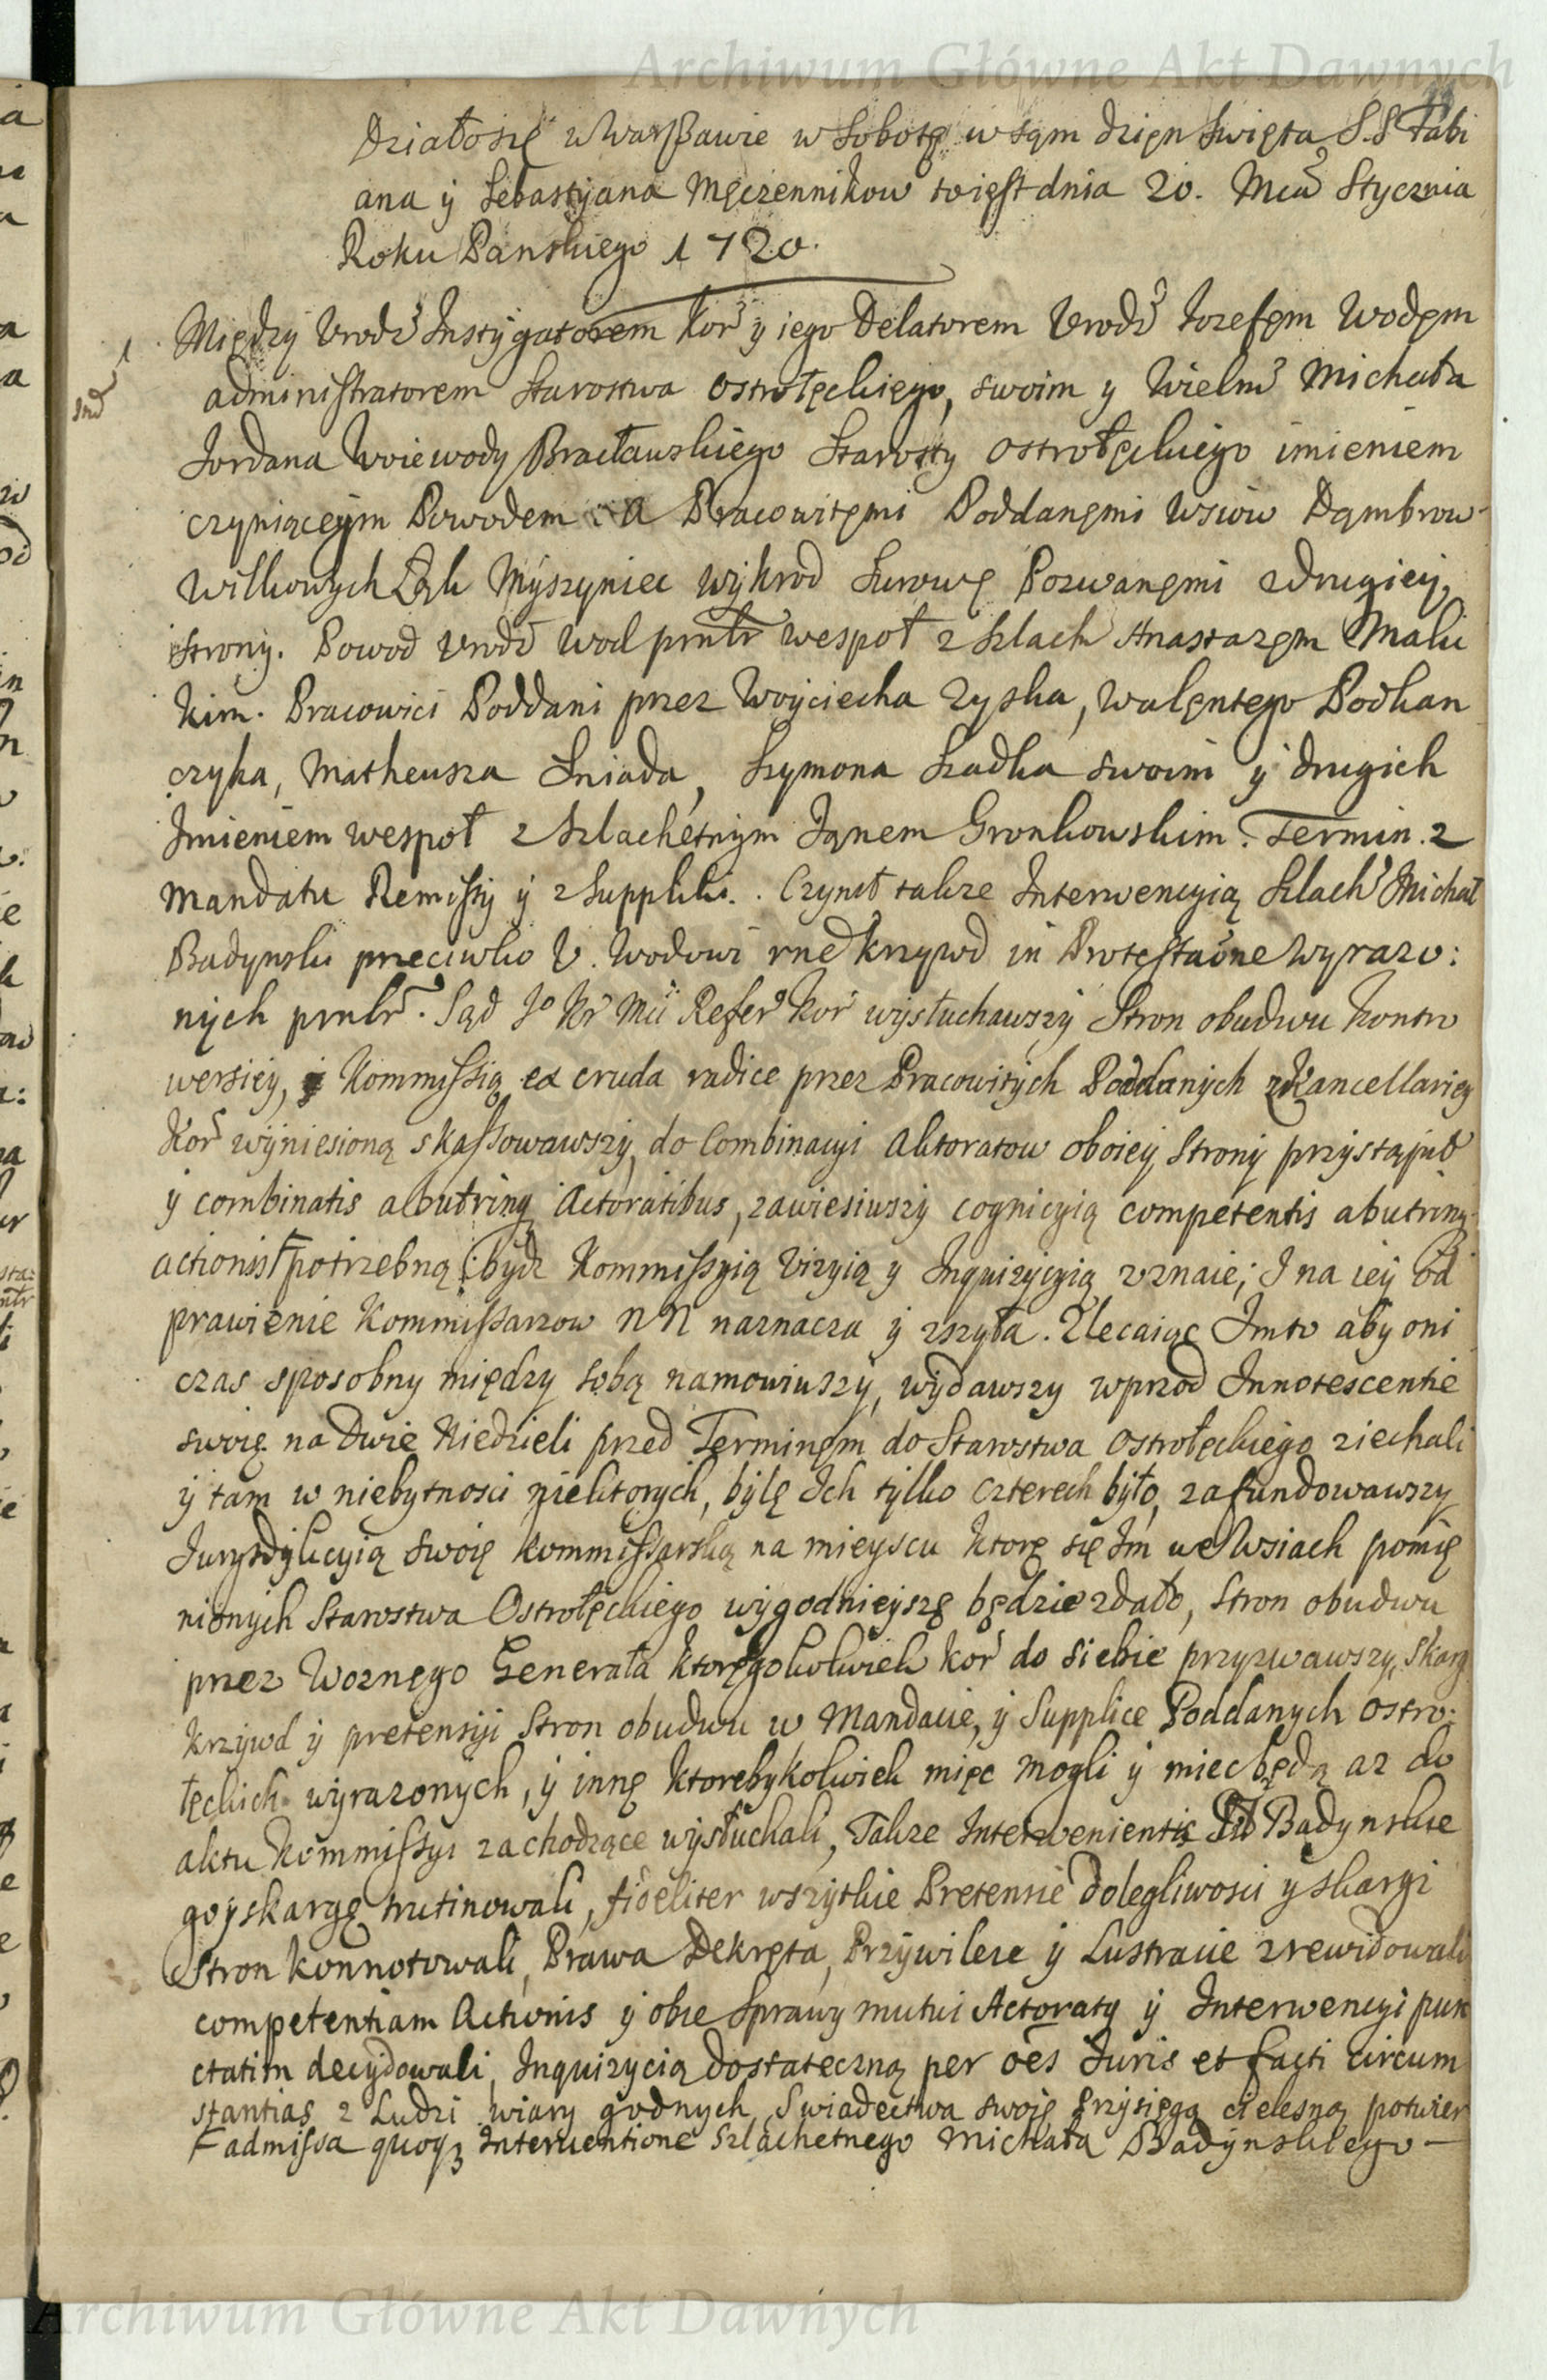 Archiwum Główne Akt Dawnych
Działosię w Warszawie w Sobotę w sąm dzięn Swięta S.S Fabi
ana y Sebastyana Męczennikow to ięst dnia 20. Mca Stycznia
Roku Panskiego 1720.
1 Między Urodz Instygatorem Kor y iego Delatorem Urodz Jozefęm Wodęm
administratorem Starostwa Ostrołęckięgo, swoim y Wielm Michała
Jordana Woiewody Bracławskiego Starosty Ostrołęckiego imieniem
czyniącęym Powodem a Pracowitęmi Poddanęmi Wsiow Dąmbrow
Wilkowych Łąk Myszyniec Wykrod Surowę Pozwanęmi z drugiey
strony. Powod Urodz Wod pmtr wespoł z Szlach Anastazęm Malic
kim. Pracowici Poddani przez Woyciecha Zyska, Walęntego Podkan
czyka, Matheusza Sniada, Szymona Szadka swoim y drugich
Imieniem wespoł z Szlachetnym Jąnem Gronkowskim. Termin z
Mandatu Remissy y z Suppliki. Czynił takze Interwencyią Szlach Michał
Badynski przeciwko U. Wodowi rne krzywd in Protestaone wyrazo:
nych pmtr. Sąd Jo Kr Mci Refer Kor wysłuchawszy Stron obudwu kontro
wersiey, Kommissią ex cruda radice przez Pracowitych Poddanych z Kancellariey
Kor wyniesioną skassowawszy, do Combinacyi Aktoratow oboiey Strony przystąpił
y combinatis abutrinq Actoratibus, zawiesiwszy cognicyią competentis abutrinq
actionis potrzebną bydz Kommissyią Wizyią y Inquizycyią uznaie; I na iey od
prawienie Kommissarzow NN naznacza y zsyła. Zlecaiąc Imto aby oni
czas sposobny między sobą namowiwszy, wydawszy wprzod Innotescentie
swoię na dwie Niedzieli przed Terminęm do Starostwa Ostrołęckiego ziechali
y tam w niebytnosci niektorych, bylę Ich tylko czterech było, zafundowawszy
Jurysdykcyią swoię kommissarską na mieyscu ktorę się Im we Wsiach pomię
nionych Starostwa Ostrołęckiego wygodnieyszę będzie zdało, Stron obudwu
przez Woznęgo Generała ktoręgokolwiek Kor do siebie przyzwawszy, Skarg
krzywd y pretensyi Stron obudwu w Mandacie, y Supplice Poddanych Ostro:
łęckich wyrazonych, y innę ktorebykolwiek mięc mogli y miec będą az do
aktu Kommissyi zachodzące wysłuchali, Takze Interwenientis Badynskie
go y skargę trutinowali, fideliter wszytkie Pretensie dolegliwosci y skargi
Stron konnotowali, Prawa Dekręta, Przywileie y Lustracie zrewidowali
competentiam Actionis y obie Sprawy mutui Actoratq y Interwencyi pun
ctatim decydowali, Inquizycią dostateczną per oēs Juris et facti circum
stantias z Ludzi wiary godnych Swiadectwa swoię przysięgą cielesną potwier
admissa quoq Interventione Szlachetnego Michała Badynskiego
Archiwum Główne Akt Dawnych